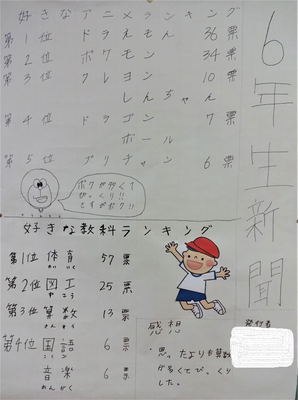 6年生新聞
好きなアニメランキング
第1位 ドラえもん 36票
第2位 ポケモン 34票
第3位 クレヨン 10票
しんちゃん
第4位 ドラゴン 7票
ボール
第5位 プリチャン 6票
ボクが1位で
びっくり!!
さすがボク!!
好きな教科ランキング
第1位 体育 57票
たいいく
第2位 図工 25票
ずこう
第3位 算数 13票
さんすう
第4位 国語 6票
こくご
音楽 6票
おんがく
感想
・思ったよりも算数
が多くてびっくり
しました。
発行者